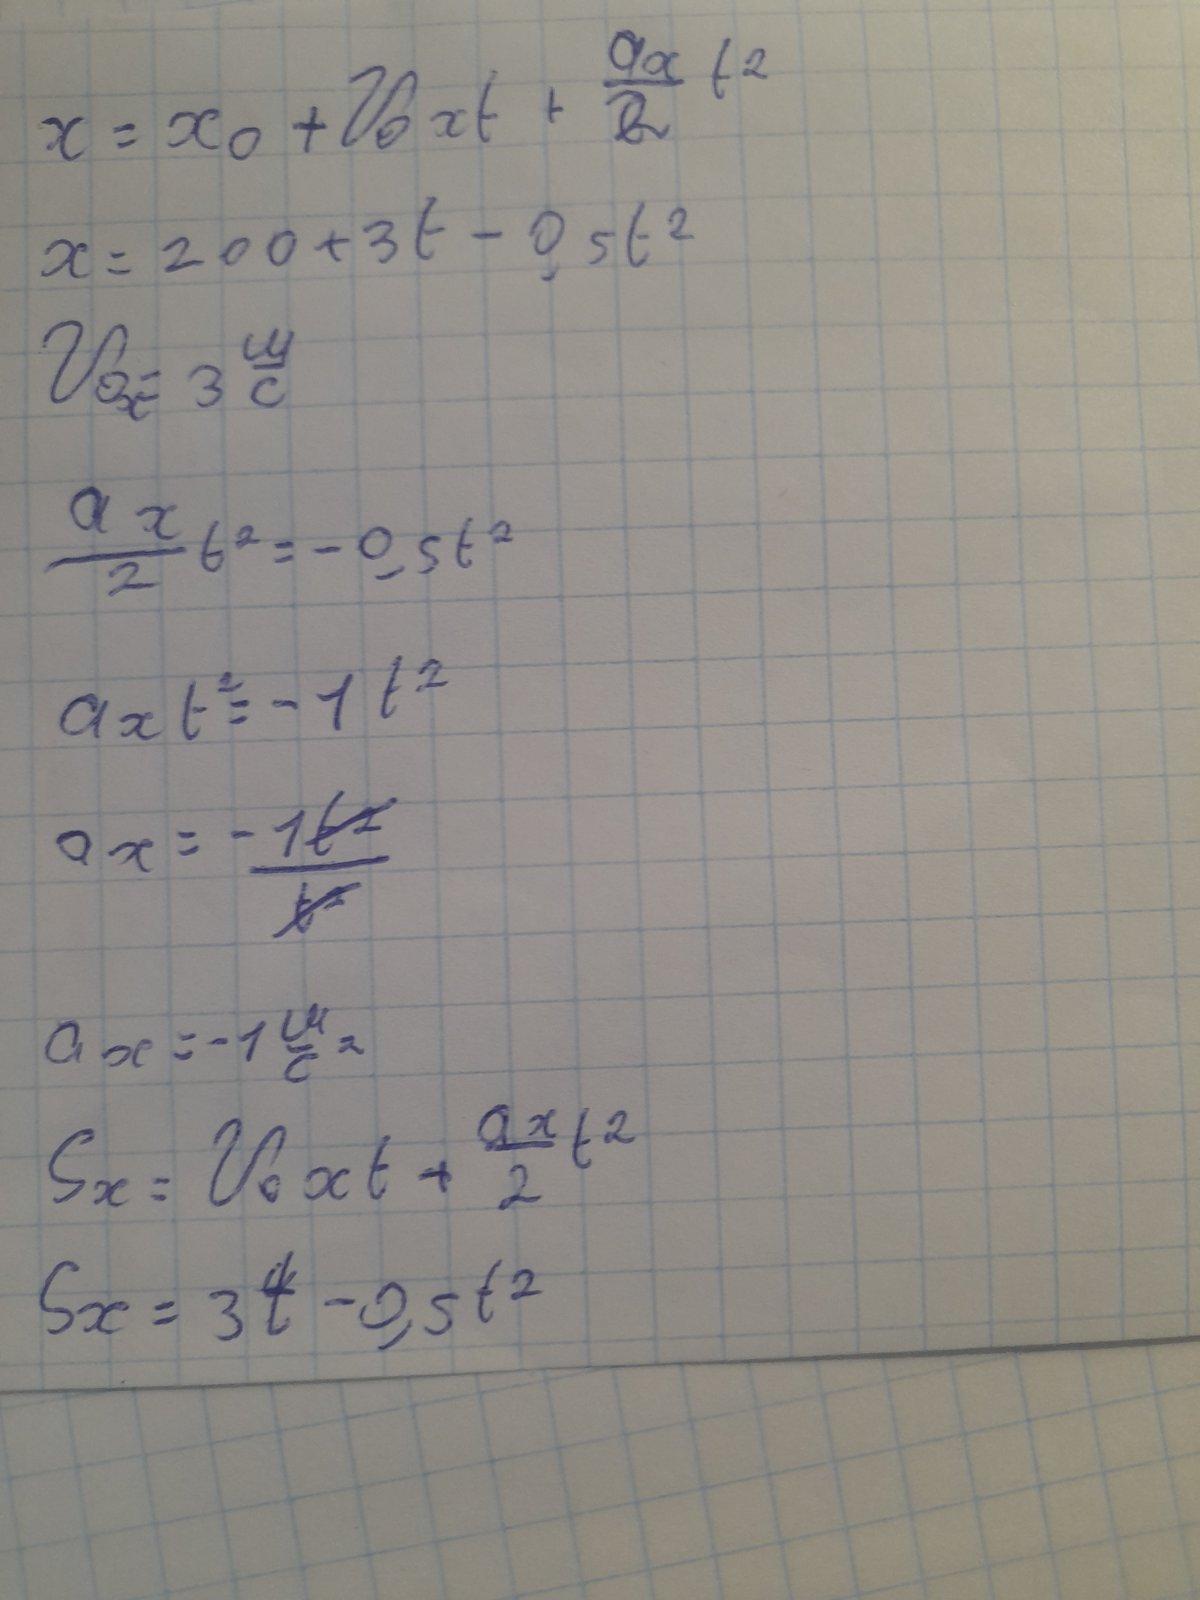 x = x₀ + V₀xt + ax/2 t²
x = 200 + 3t - 0,5t²
V₀x = 3 м/с
ax/2 t² = -0,5t²
axt² = -1t²
ax = -1t²/t²
ax = -1 м/с²
Sx = V₀xt + ax/2 t²
Sx = 3t - 0,5t²